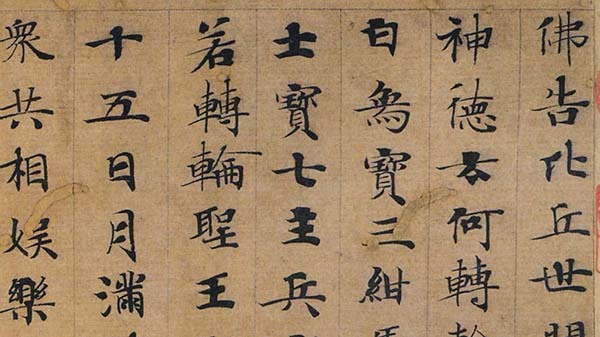 佛告比丘世
神德云何轉
白象寶三紺
士寶七主兵
若轉輪聖王
十五日月滿
眾共相娛樂